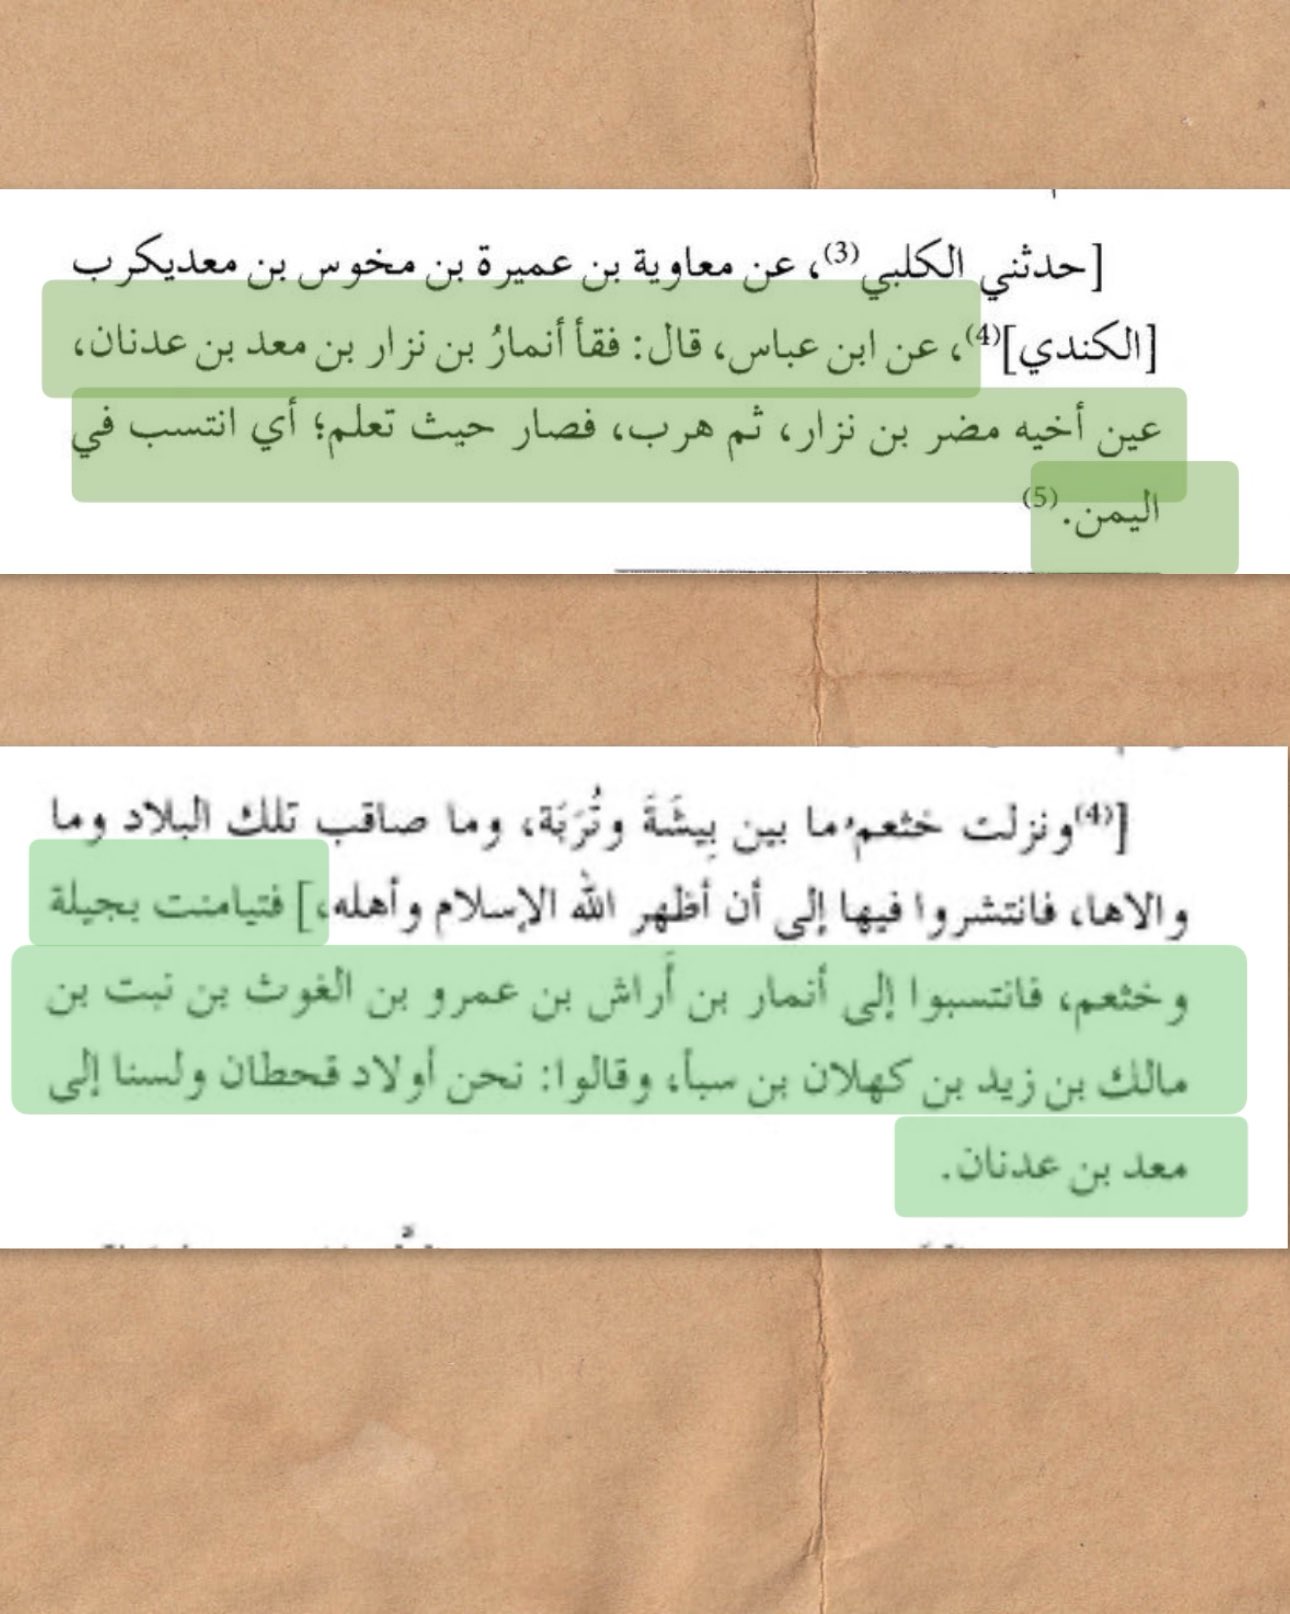 [حدثني الكلبي(3)، عن معاوية بن عميرة بن مخوس بن معديكرب
[الكندي](4)، عن ابن عباس، قال: فقأ أنمارُ بن نزار بن معد بن عدنان،
عين أخيه مضر بن نزار، ثم هرب، فصار حيث تعلم؛ أي انتسب في
اليمن.(5)
[(4)ونزلت خثعم ما بين بِيشَةَ وتُرَبَة، وما صاقب تلك البلاد وما
والاها، فانتشروا فيها إلى أن أظهر الله الإسلام وأهله،] فتيامنت بجيلة
وخثعم، فانتسبوا إلى أنمار بن أَراش بن عمرو بن الغوث بن نبت بن
مالك بن زيد بن كهلان بن سبأ، وقالوا: نحن أولاد قحطان ولسنا إلى
معد بن عدنان.